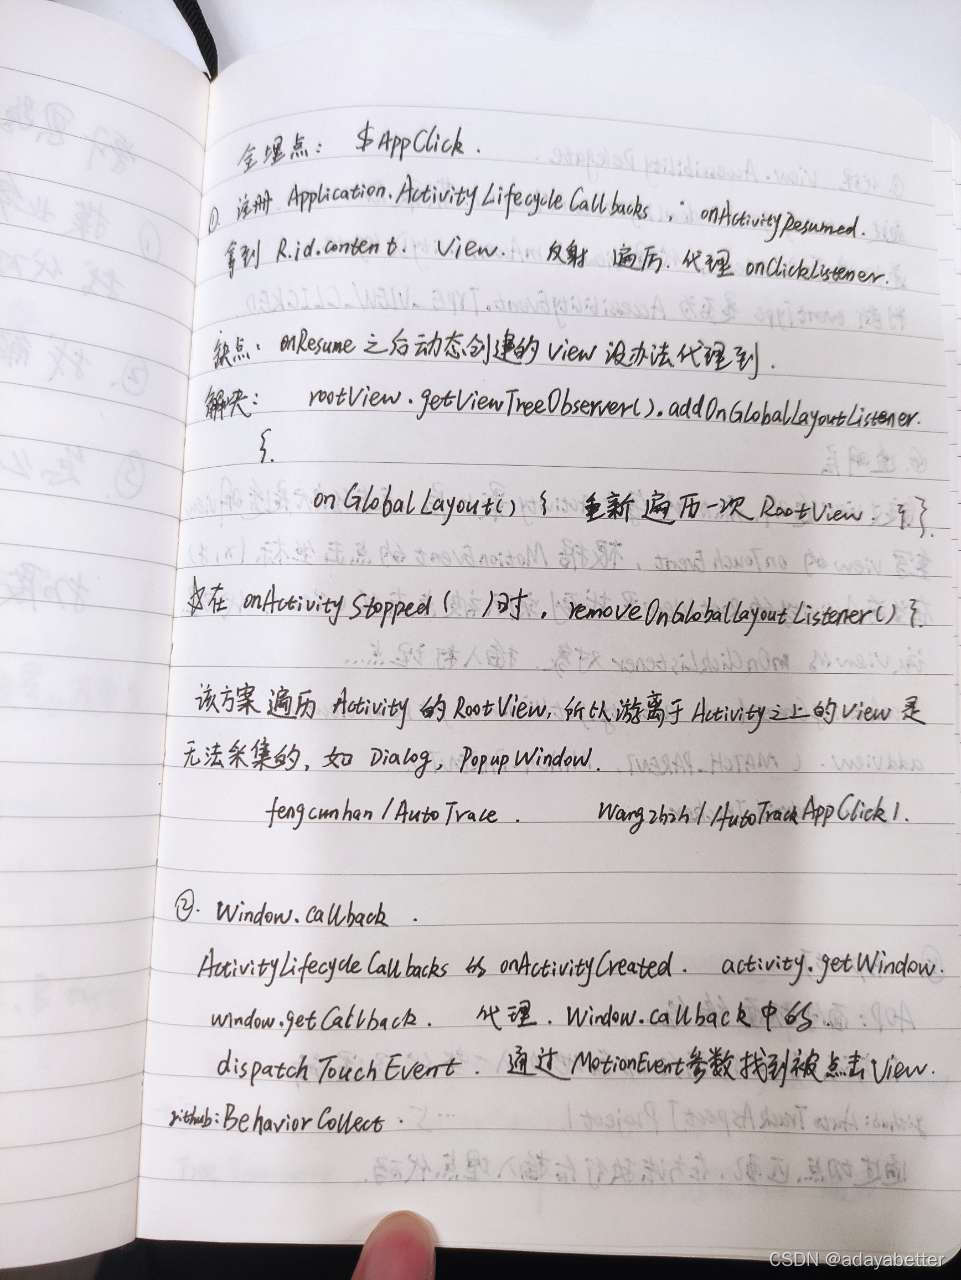 全埋点: $AppClick.
①. 注册 Application.ActivityLifecycleCallbacks, onActivityResumed.
拿到 R.id.content. View. 反射 遍历. 代理 onClickListener.
缺点: onResume 之后动态创建的 View 没办法代理到.
解决: rootView.getViewTreeObserver().addOnGlobalLayoutListener.
{.
onGlobalLayout() { 重新遍历一次 RootView. } }.
在 onActivityStopped ( ) 时. removeOnGlobalLayoutListener() }.
该方案遍历 Activity 的 RootView, 所以游离于 Activity之上的 View 是
无法采集的, 如 Dialog, PopupWindow.
fengcunhan/AutoTrace. Wangzhzh/AutoTrackAppClick1.
②. Window.callback.
ActivityLifecycleCallbacks 的 onActivityCreated. activity.getWindow.
window.getCallback. 代理. Window.callback 中的.
dispatchTouchEvent. 通过 MotionEvent参数找到被点击 View.
github: BehaviorCollect.
CSDN @adayabetter